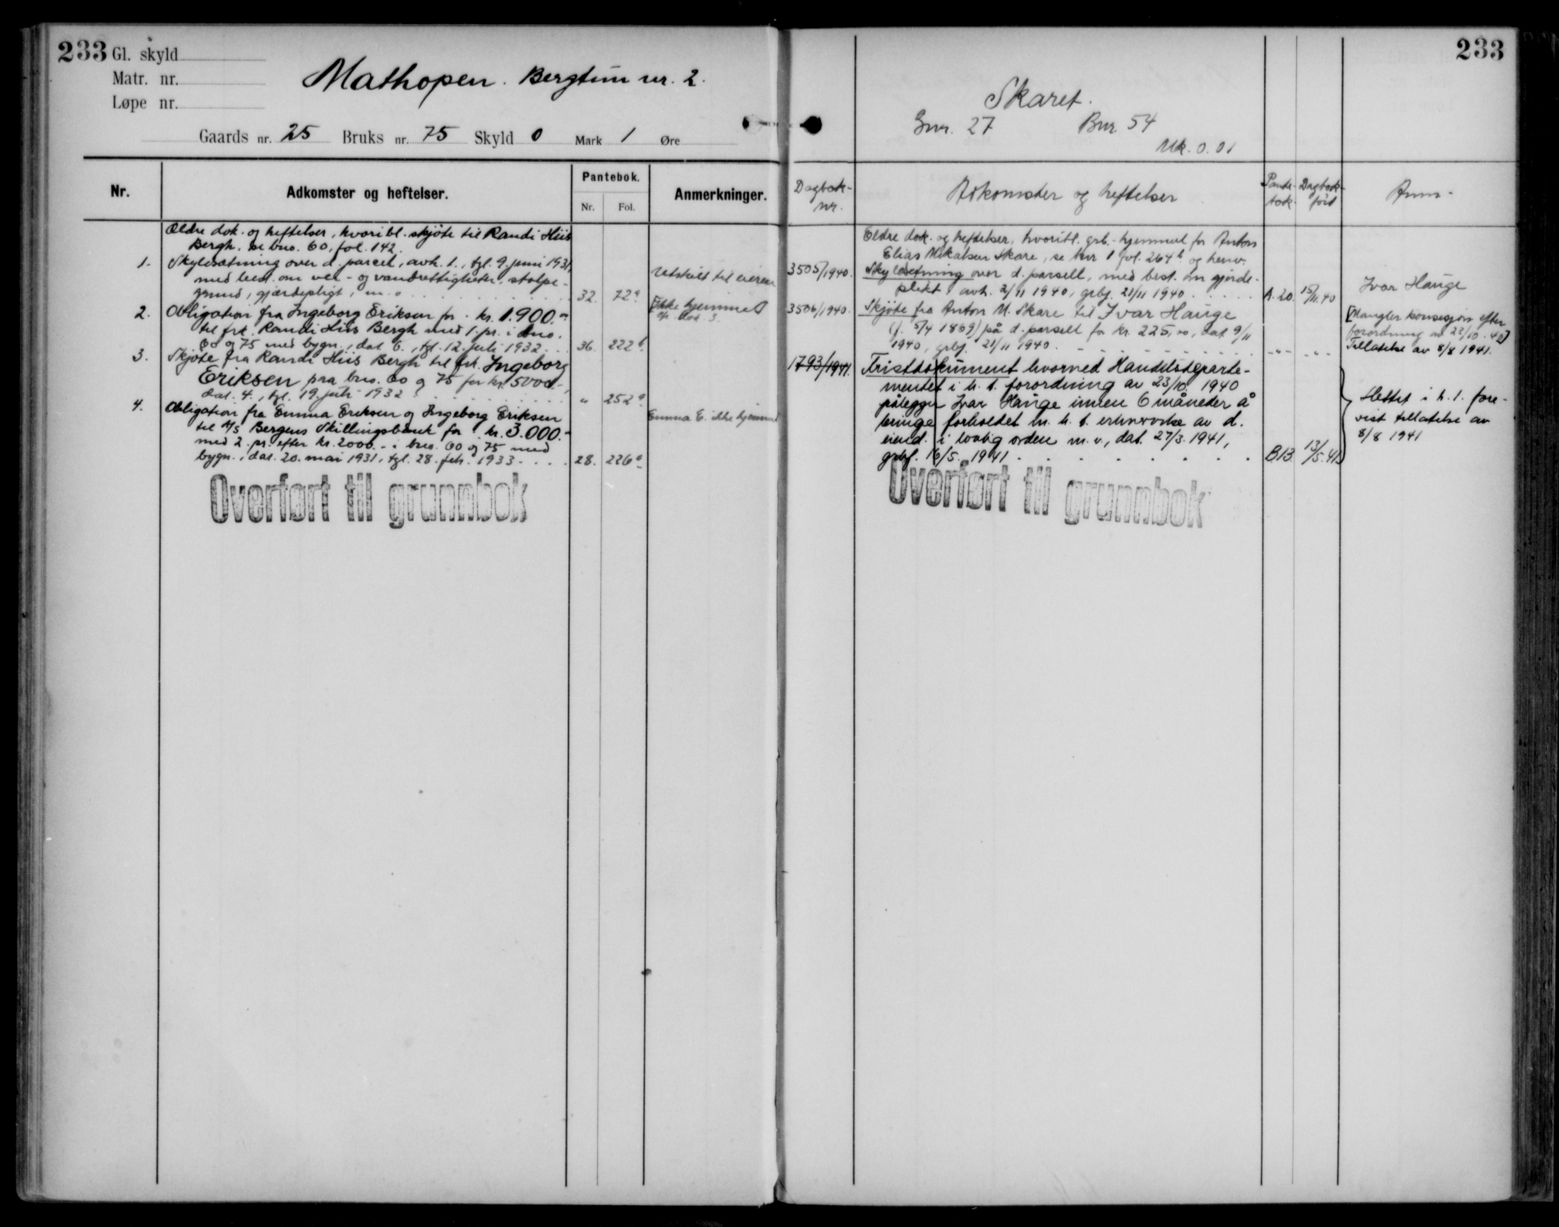 233 Gl. skyld
Matr. nr.
Løpe nr.
Mathopen. Bergtun nr. 2.
Gaards nr. 25 Bruks nr. 75 Skyld 0 Mark 1 Øre
Nr. Adkomster og heftelser. Pantebok. Nr. Fol. Anmerkninger.
Ældre dok. og heftelser, hvoribl. skjøte til Randi Hiis
Bergh, se bno. 60, fol. 142.
1. Skyldsætning over d. parcel, avh. 1., tgl. 9. juni 1931,
med best. om vei- og vandrettigheter, stolpe-
grund, gjærdepligt, m. 32. 72a Utskilt til eieren
2. Obligation fra Ingeborg Eriksen for kr. 1.900.-
til frk. Randi Hiis Bergh med 1. pr. i bno.
60 og 75 med bygn., dat. 6., tgl. 12. juli 1932. 36. 222b Ikke hjemmel
3. Skjøte fra Randi Hiis Bergh til frk. Ingeborg
Eriksen paa bno. 60 og 75 for kr. 5000.-,
dat. 4., tgl. 19. juli 1932. " 252a
4. Obligation fra Emma Eriksen og Ingeborg Eriksen
til A/S Bergens Skillingsbank for kr. 3.000.-
med 2. pr. efter kr. 2000.- i bno. 60 og 75 med
bygn., dat. 20. mai 1931, tgl. 28. feb. 1933. 28. 226a Emma E. ikke hjemmel
Overført til grunnbok
233
Skaret.
Gnr. 27 Bnr. 54
Mk. 0.01
Dagbok-nr. Adkomster og heftelser Pante-bok. Dagbok-ført Anm.
Eldre dok. og heftelser, hvoribl. grb.-hjemmel for Anton
Elias Mikalsen Skare, se bnr 1 fol. 264b og henv.
3505/1940. Skyldsetning over d. parsell, med best. om gjerde-
plikt avh. 2/11 1940, grbf. 21/11 1940. A. 20. 15/11.40 Ivar Hauge
3506/1940. Skjøte fra Anton M. Skare til Ivar Hauge
(f. 5/4 1909) på d. parsell for kr. 225,00, dat. 9/11
1940, grbf. 21/11 1940. -"- -"-
[Mangler konsesjon efter
forordning av 23/10. 40]
Tillatelse av 8/8 1941.
1793/1941. Fristdokument hvorved Handelsdeparte-
mentet i h. t. forordning av 23/10 1940
pålegger Ivar Hauge innen 6 måneder å
bringe forholdet m. h. t. ervervelse av d.
eiend. i lovlig orden m. v., dat. 27/3. 1941,
grbf. 16/5. 1941. B13 13/5.41
Slettet i h. t. fore-
vist tillatelse av
8/8 1941
Overført til grunnbok